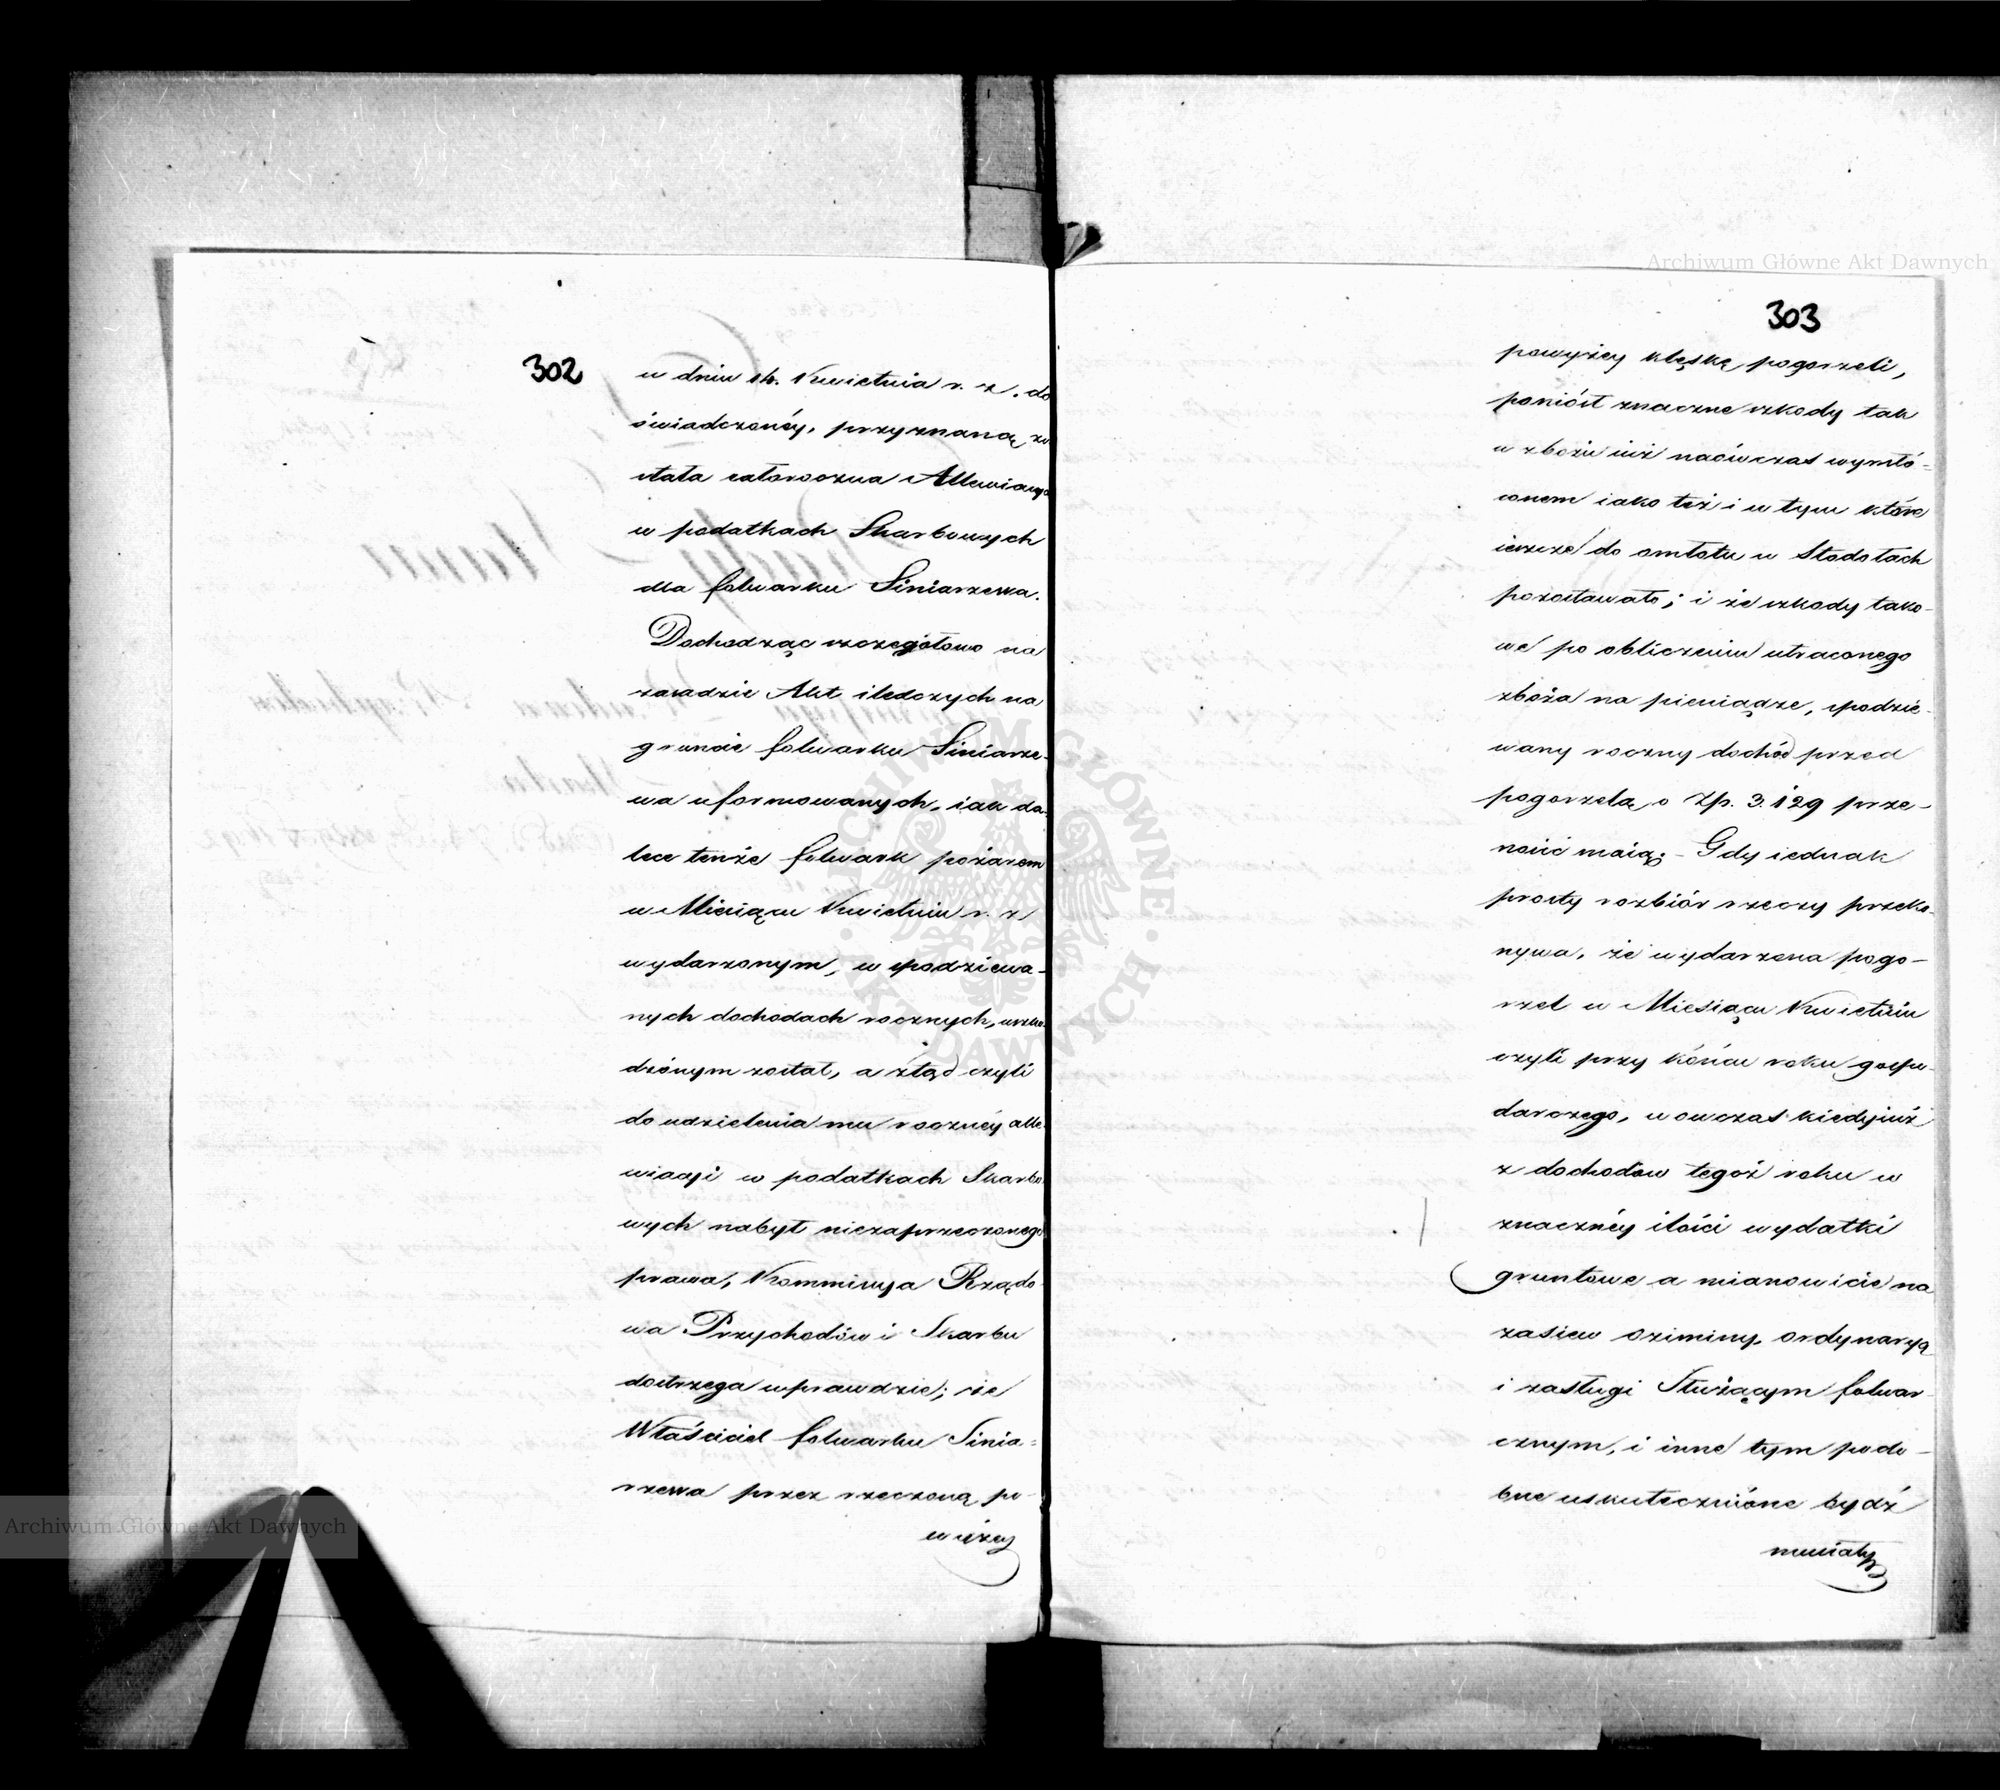 302
w dniu 16. Kwietnia r. z. do
świadczonéy, przyznaną zo
stała całoroczna Allewiacya
w podatkach Skarbowych
dla folwarku Siniarzewa.
Dochodząc szczegółowo na
zasadzie Akt śledczych na
gruncie folwarku Siniarze-
wa uformowanych, iak da-
lece tenże folwark pożarem
w Miesiącu Kwietniu r. z
wydarzonym, w spodziewa-
nych dochodach rocznych, uszko-
dzonym został, a ztąd czyli
do udzielenia mu rocznéy alle-
wiacyi w podatkach Skarbo-
wych nabył niezaprzeczonego
prawa, Kommissya Rządo-
wa Przychodów i Skarbu
dostrzega wprawdzie; że
Właściciel folwarku Sinia-
rzewa przez rzeczoną po-
wyżey
303
powyżey klęskę pogorzeli,
poniósł znaczne szkody tak
w zbożu iuż naówczas wymłó-
conem iako też i w tym które
ieszcze do omłotu w Stodołach
pozostawało; i że szkody tako-
we po obliczeniu utraconego
zboża na pieniądze, spodzie-
wany roczny dochód przed
pogorzelą o Zp. 3.129 prze-
nosić maią; - Gdy iednak
prosty rozbiór rzeczy przeko-
nywa, że wydarzona pogo-
rzel w Miesiącu Kwietniu
czyli przy końcu roku gospo-
darczego, w owczas kiedy iuż
z dochodow tegoż roku w
znacznéy ilości wydatki
gruntowe a mianowicie na
zasiew oziminy, ordynaryą
i zasługi Służącym folwar-
cznym, i inne tym podo-
bne uskutecznione bydź
musiały
Archiwum Główne Akt Dawnych
Archiwum Główne Akt Dawnych
ARCHIWUM GŁÓWNE AKT DAWNYCH